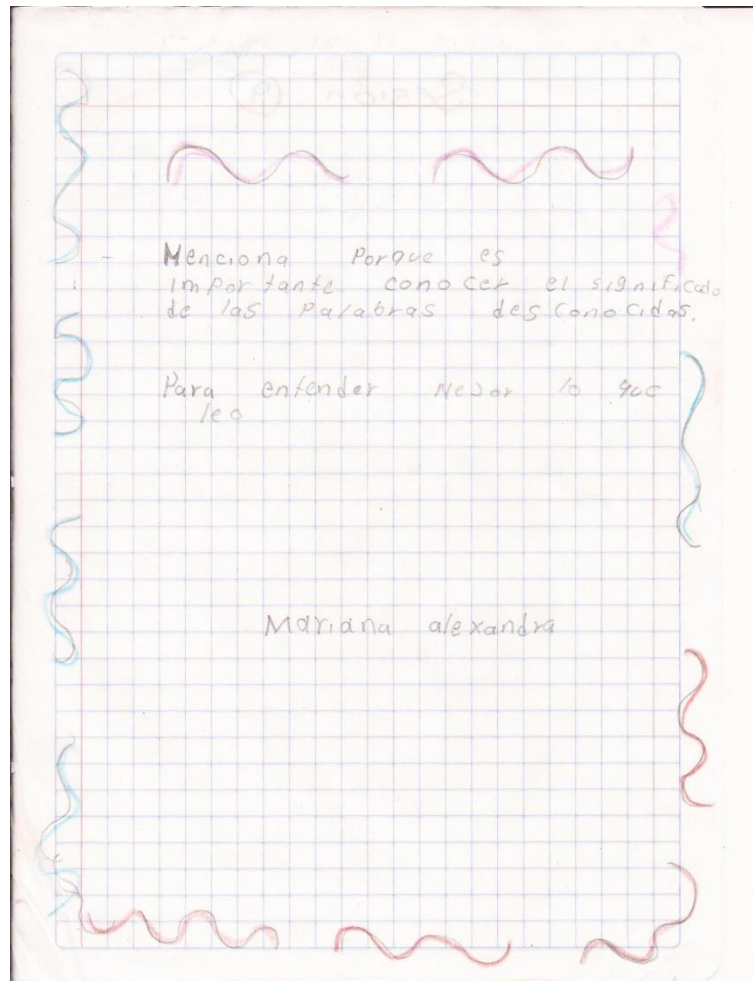 - Menciona Porque es
importante conocer el significado
de las Palabras desconocidas.
Para entender Mejor lo que
leo
Mariana alexandra